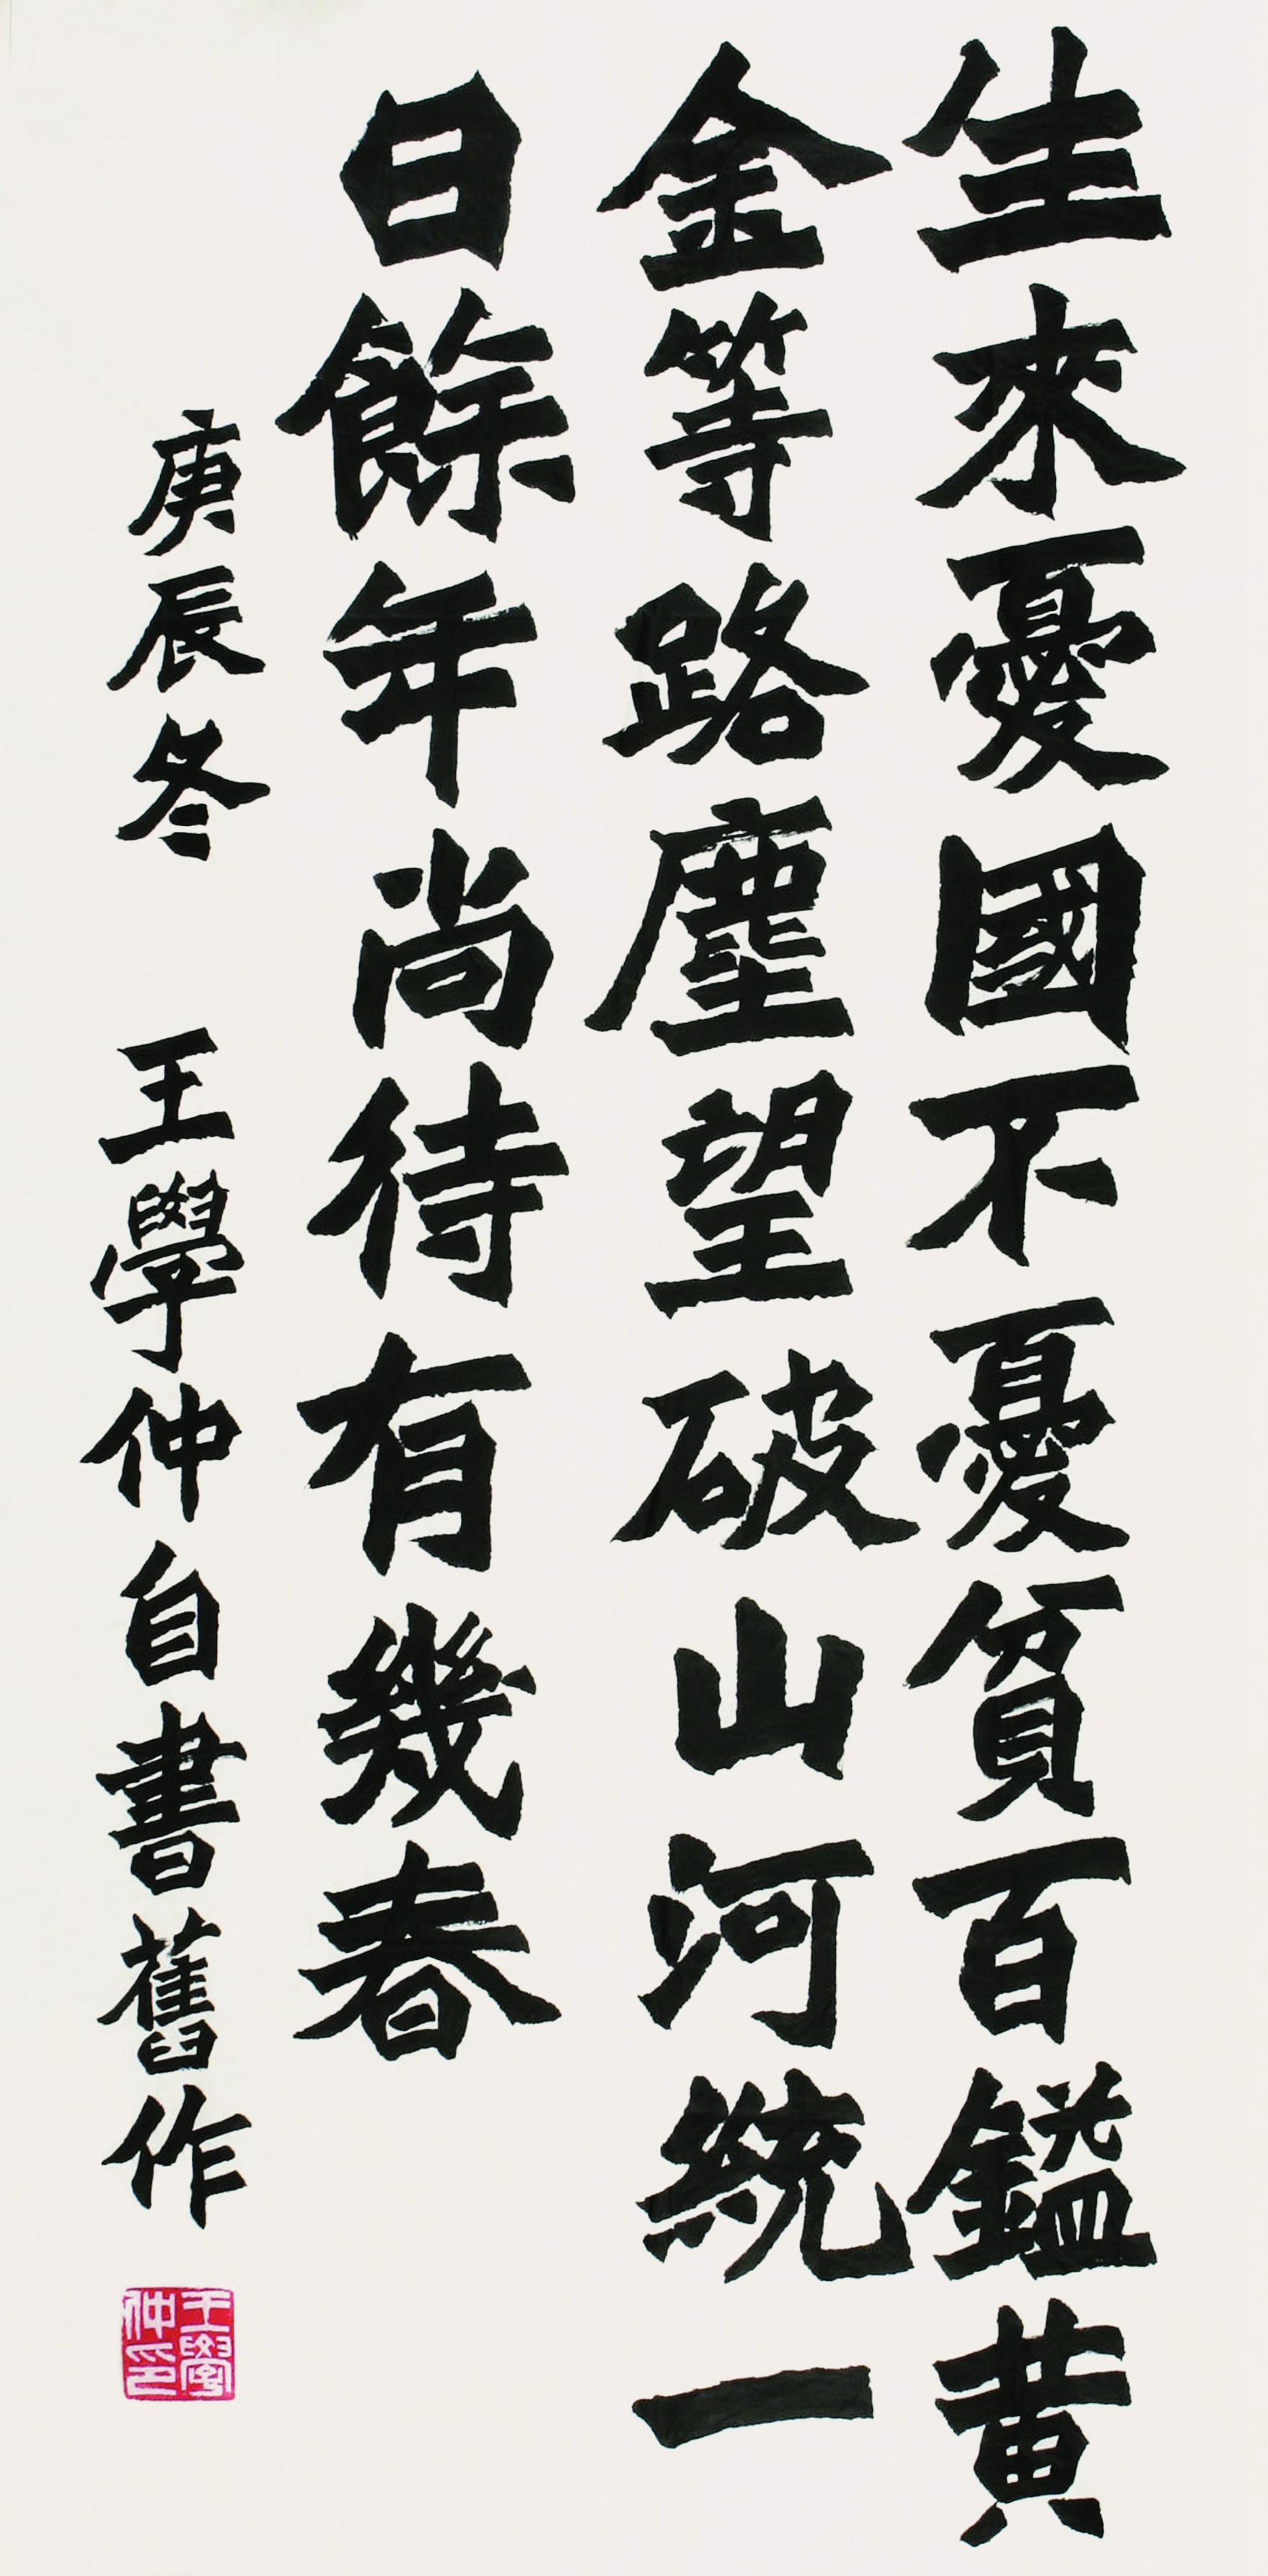 生來憂國不憂貧百鎰黃
金等路塵望破山河統一
日餘年尚待有幾春
庚辰冬 王學仲自書舊作
王學仲印